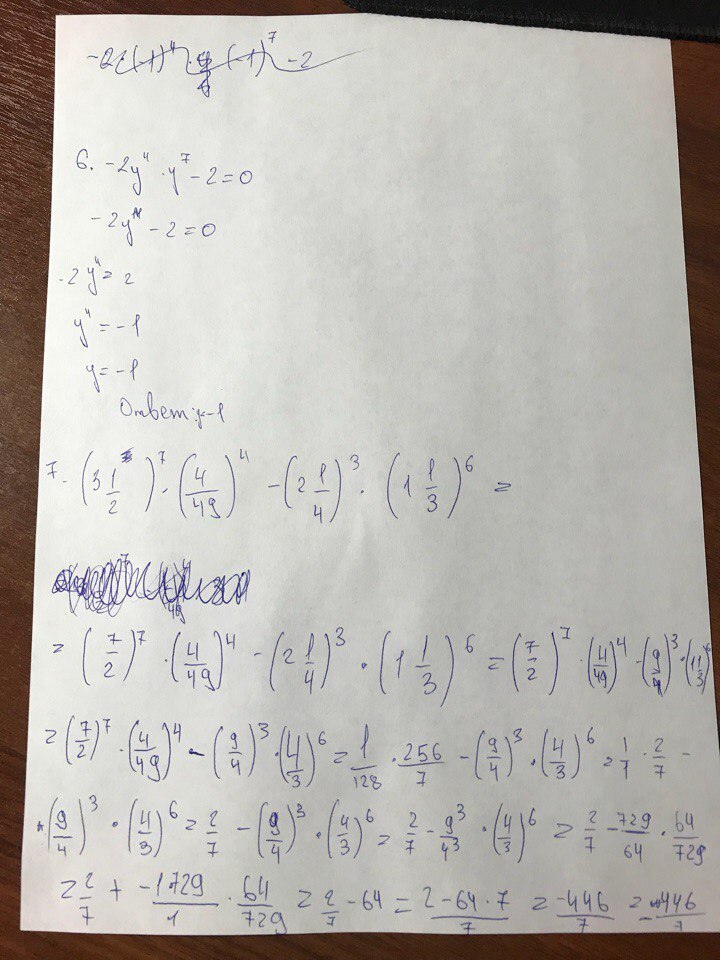 -2(-1)⁴ · (-1)⁷ - 2
6. -2y⁴ · y⁷ - 2 = 0
-2y¹¹ - 2 = 0
-2y¹¹ = 2
y¹¹ = -1
y = -1
Ответ: y-1
7. (3 1/2)⁷ · (4/49)⁴ - (2 1/4)³ · (1 1/3)⁶ =
= (7/2)⁷ · (4/49)⁴ - (2 1/4)³ · (1 1/3)⁶ = (7/2)⁷ · (4/49)⁴ - (9/4)³ · (1 1/3)⁶
= (7/2)⁷ · (4/49)⁴ - (9/4)³ · (4/3)⁶ = 1/128 · 256/7 - (9/4)³ · (4/3)⁶ = 1/1 · 2/7 -
- (9/4)³ · (4/3)⁶ = 2/7 - (9/4)³ · (4/3)⁶ = 2/7 - 9³/4³ · (4/3)⁶ = 2/7 - 729/64 · 64/729
= 2/7 + -1729/1 · 64/729 = 2/7 - 64 = 2-64·7/7 = -446/7 = -446/7